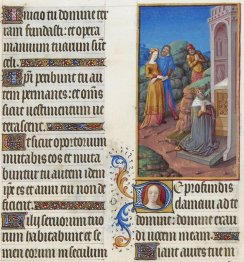 Inicio tu domine ter
ram fundasti: et opera
manuum tuarum sunt
celi.
Ipsi peribunt tu au
tem permanes: et omnes
sicut vestimentum ve
terascent.
Et sicut opertorium
mutabis eos et muta
buntur tu autem idem
ipse es et anni tui non de
ficient.
Filii servorum tuo
rum habitabunt et se
men eorum in seculum
De profundis
clamavi ad te
domine: domine exau
di vocem meam.
Fiant aures tue in